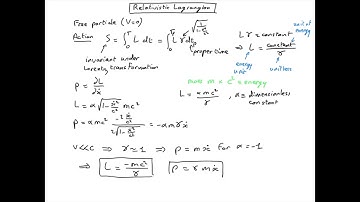 Relativistic Lagrangian
Free particle (V=0)
Action S = ∫₀ᵀ L dt = ∫₀ᵀ Lγ dτ
√(1/(1-ẋ²/c²))
proper time
invariant under
Lorentz transformation
Lγ = constant
unit of energy
⇒ L = constant/γ
energy unit
unitless
mass × c² = energy
L = α m c²/γ , α ≡ dimensionless
constant
p = ∂L/∂ẋ
L = α √(1-ẋ²/c²) mc²
p = α mc² (-2ẋ/c²)/(2√(1-ẋ²/c²)) = -α m γ ẋ
v≪c ⇒ γ≃1 ⇒ p = mẋ for α = -1
⇒ L = -mc²/γ p = γ m ẋ